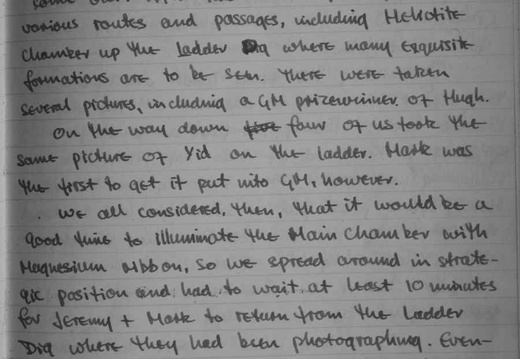 various routes and passages, including Helictite
chamber up the ladder Dig where many exquisite
formations are to be seen. There were taken
several pictures, including a GM prizewinner of Hugh.
On the way down four of us took the
same picture of Yid on the ladder. Mark was
the first to get it put into GM, however.
We all considered, then, that it would be a
good time to illuminate the Main Chamber with
Magnesium ribbon, so we spread around in strate-
gic position and had to wait at least 10 minutes
for Jeremy + Mark to return from the Ladder
Dig where they had been photographing. Even-